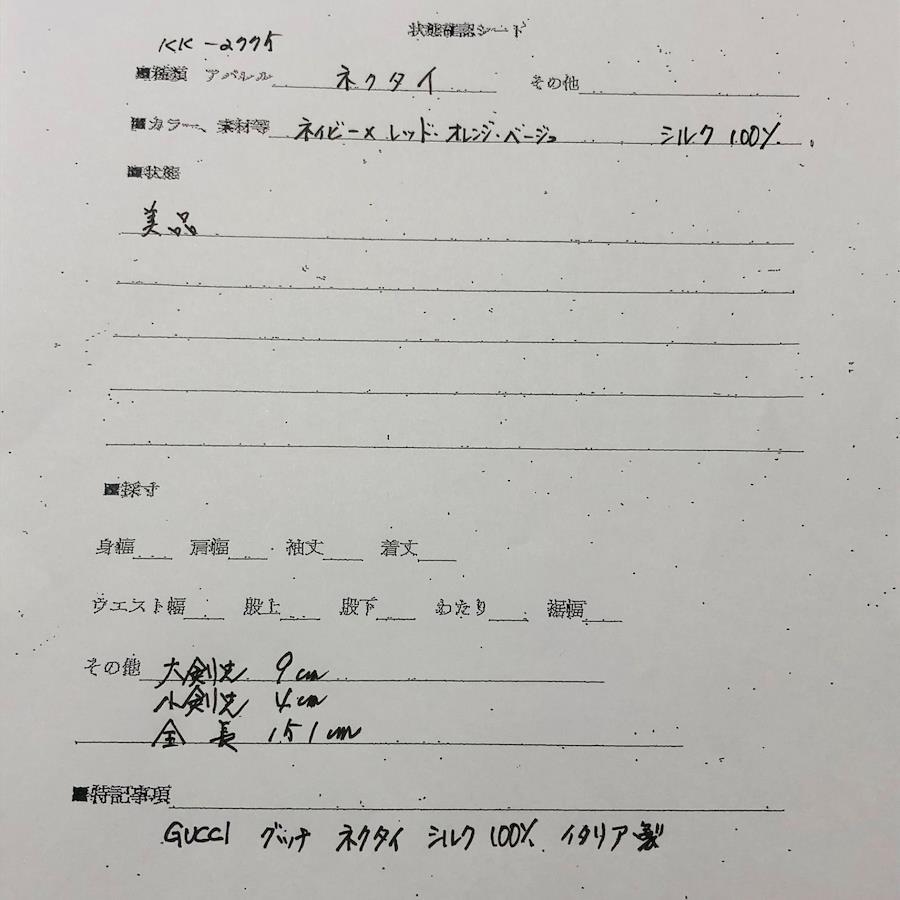 状態確認シート
KK-2775
■種類 アパレル ネクタイ その他
■カラー、素材等 ネイビー×レッド・オレンジ・ベージュ シルク100%
■状態
美品
■採寸
身幅 肩幅 袖丈 着丈
ウエスト幅 股上 股下 わたり 裾幅
その他 大剣先 9cm
小剣先 4cm
全長 151cm
■特記事項
GUCCI グッチ ネクタイ シルク100% イタリア製